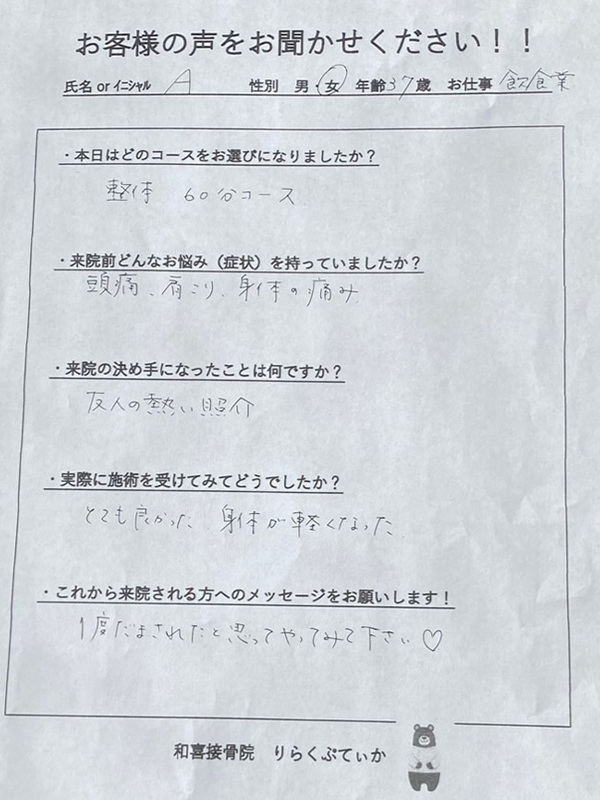 お客様の声をお聞かせください！！
氏名 or ｲﾆｼｬﾙ A 性別 男・女 年齢37歳 お仕事 飲食業
・本日はどのコースをお選びになりましたか？
整体 60分コース
・来院前どんなお悩み（症状）を持っていましたか？
頭痛、肩こり、身体の痛み
・来院の決め手になったことは何ですか？
友人の熱い照介
・実際に施術を受けてみてどうでしたか？
とても良かった 身体が軽くなった
・これから来院される方へのメッセージをお願いします！
1度だまされたと思ってやってみて下さい♡
和喜接骨院 りらくぷてぃか